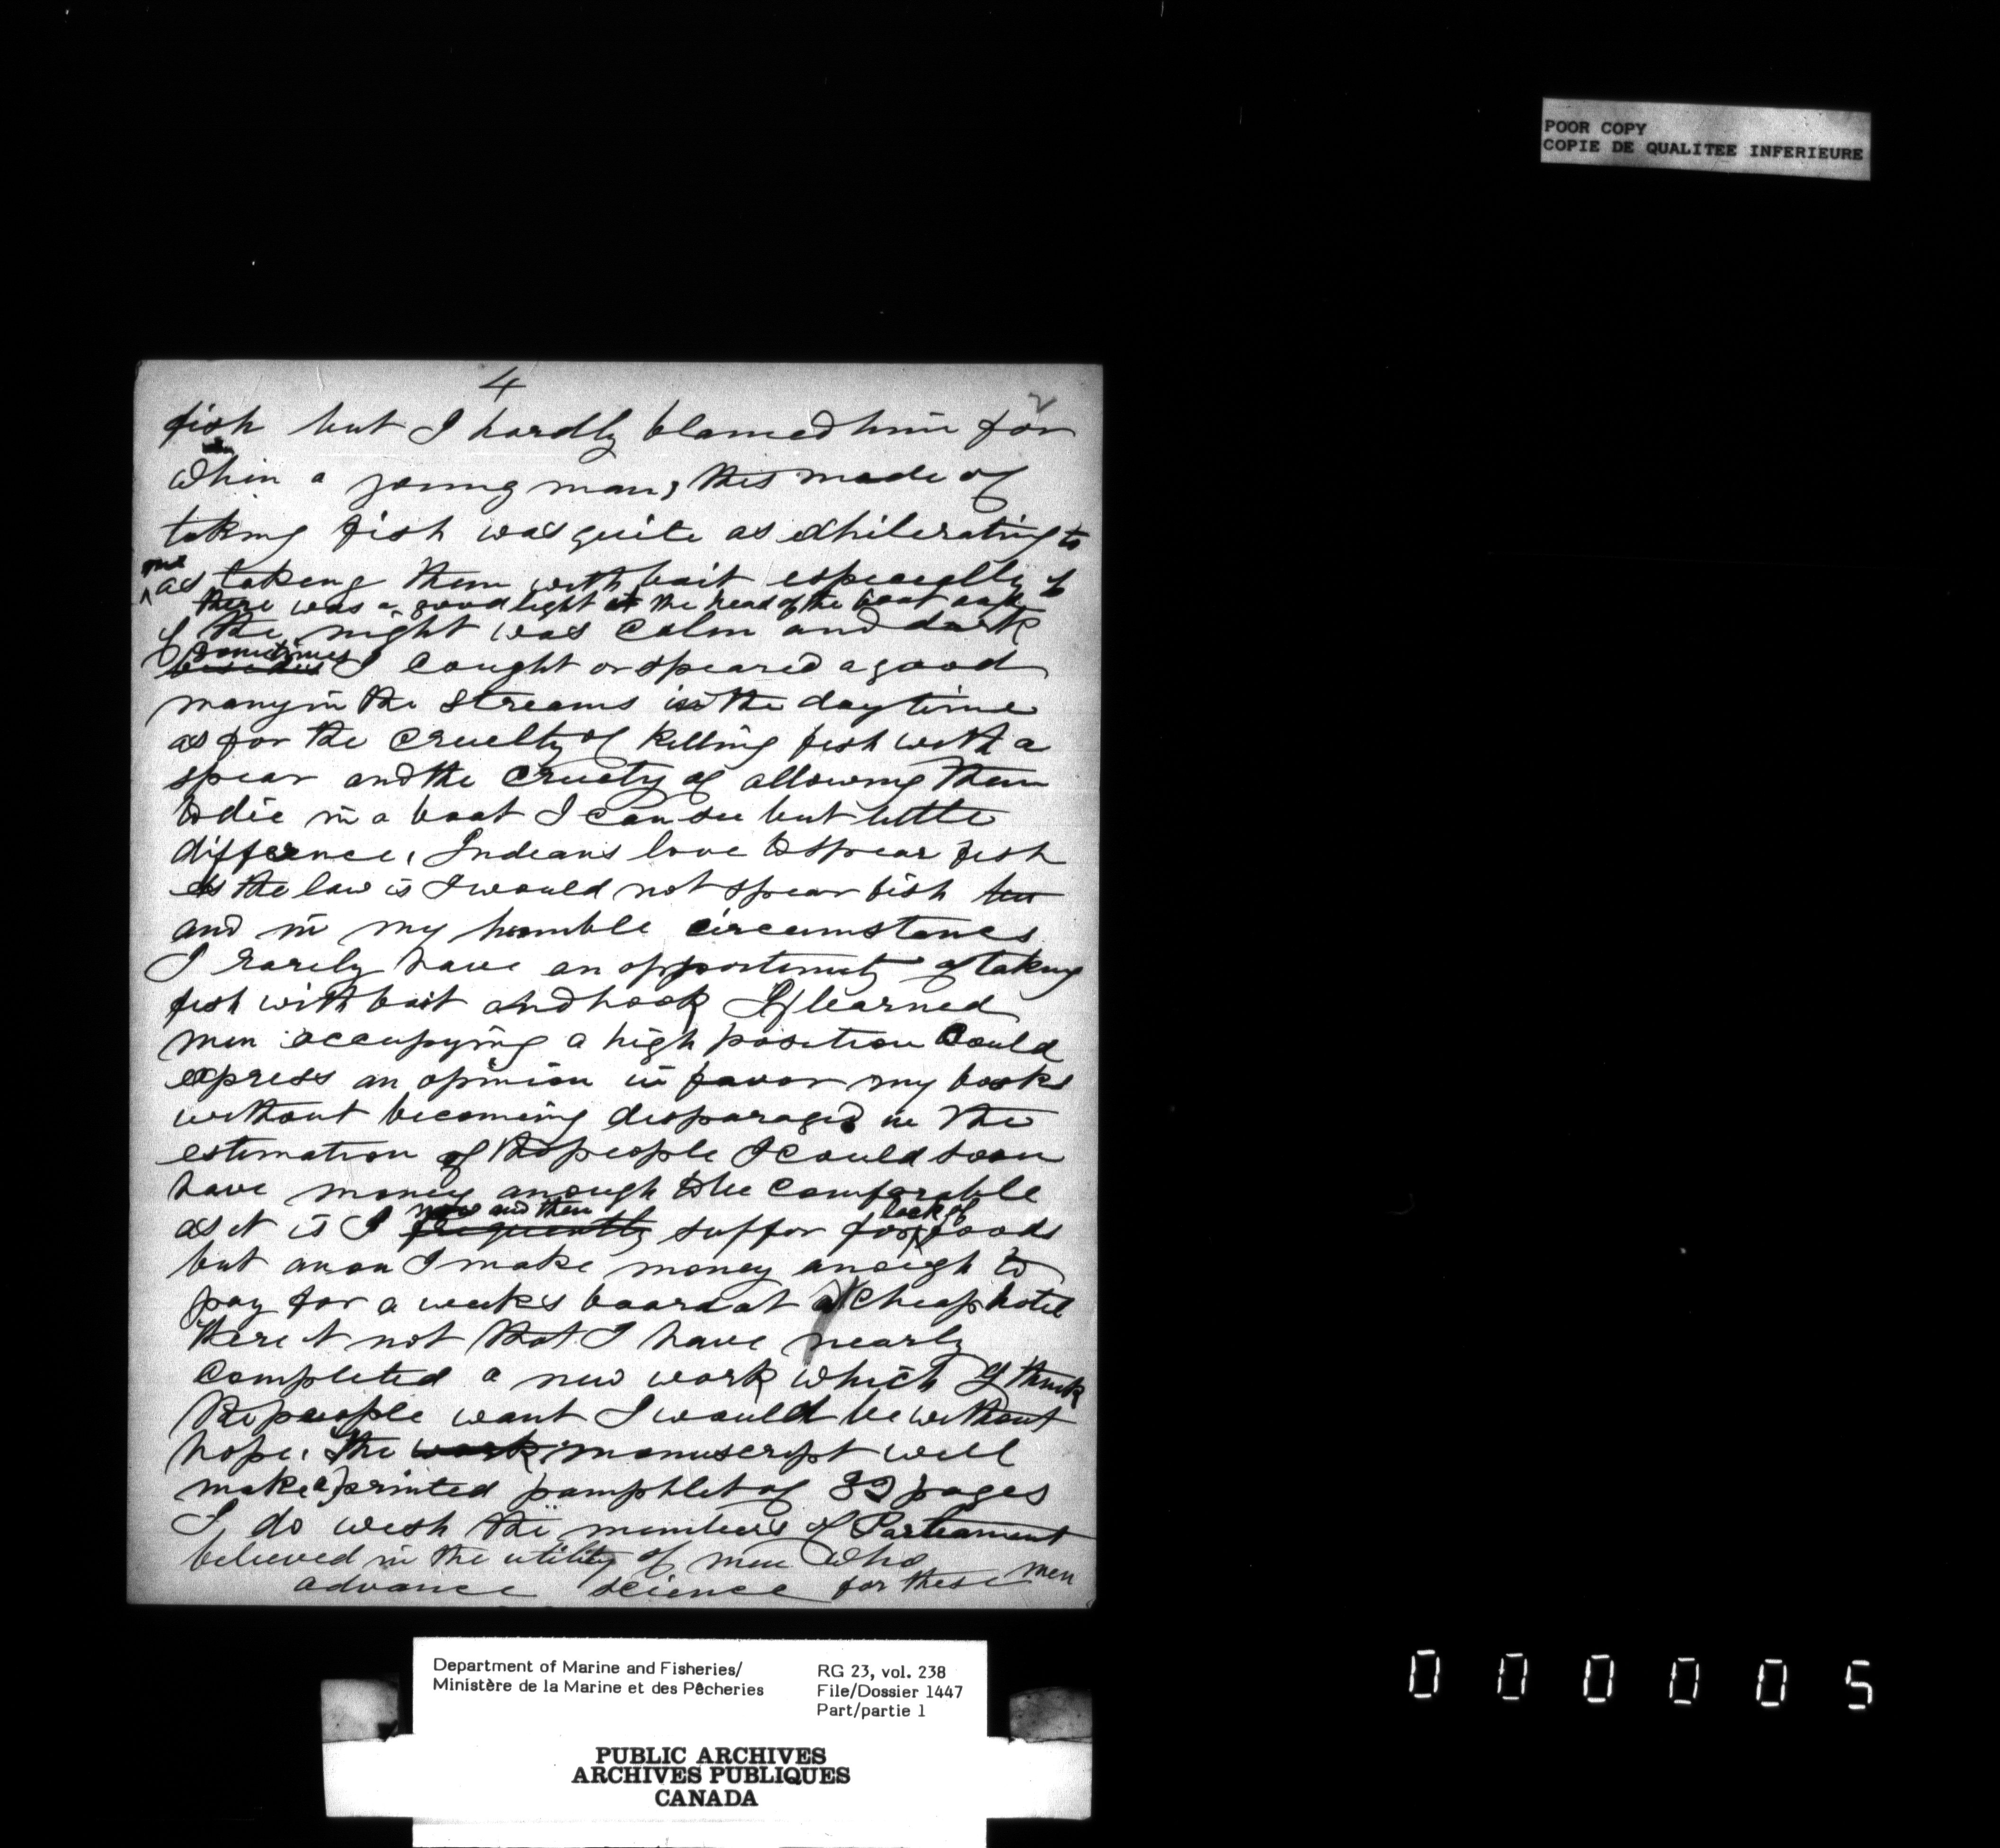 POOR COPY
COPIE DE QUALITEE INFERIEURE
4
2
fish but I hardly blamed him for
when a young man, this mode of
taking fish was quite as exhilerating to
me
as taking them with bait especially if
there was a good light at the head of the boat and
if the night was calm and dark
sometimes I caught or speared a good
many in the streams in the daytime
as for the cruelty of killing fish with a
spear and the cruety of allowing them
to die in a boat I can see but little
difference, Indeans love to spear fish
As the law is I would not spear fish
and in my humble circumstances
I rarely have an opportunity of taking
fish with bait and hook If learned
men occupying a high position could
express an opinion in favor my books
without becoming desparaged in the
estimation of the people I could soon
have money anough to be comfortable
now and then lack of
as it is I frequently suffer for foods
but anon I make money anough to
pay for a week's board at a cheap hotel
Were it not that I have nearly
completed a new work which I think
the people want I would be without
hope, The work manuscript will
make a printed pamphlet of 32 pages
I do wish the members of Parleament
believed in the utility of men who
advance science for these men
Department of Marine and Fisheries/
Ministère de la Marine et des Pêcheries
RG 23, vol. 238
File/Dossier 1447
Part/partie 1
PUBLIC ARCHIVES
ARCHIVES PUBLIQUES
CANADA
000005